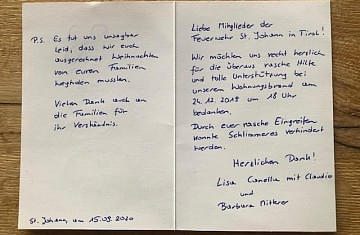 P.S. Es tut uns unsagbar
leid, dass wir euch
ausgerechnet Weihnachten
von euren Familien
wegholen mussten.
Vielen Dank auch an
die Familien für
ihr Verständnis.
St. Johann, am 15.09.2020
Liebe Mitglieder der
Feuerwehr St. Johann in Tirol!
Wir möchten uns recht herzlich
für die überaus rasche Hilfe
und tolle Unterstützung bei
unserem Wohnungsbrand am
24.12.2019 um 18 Uhr
bedanken.
Durch euer rasche Eingreifen
konnte Schlimmeres verhindert
werden.
Herzlichen Dank!
Lisa Canella mit Claudio
und
Barbara Mitterer